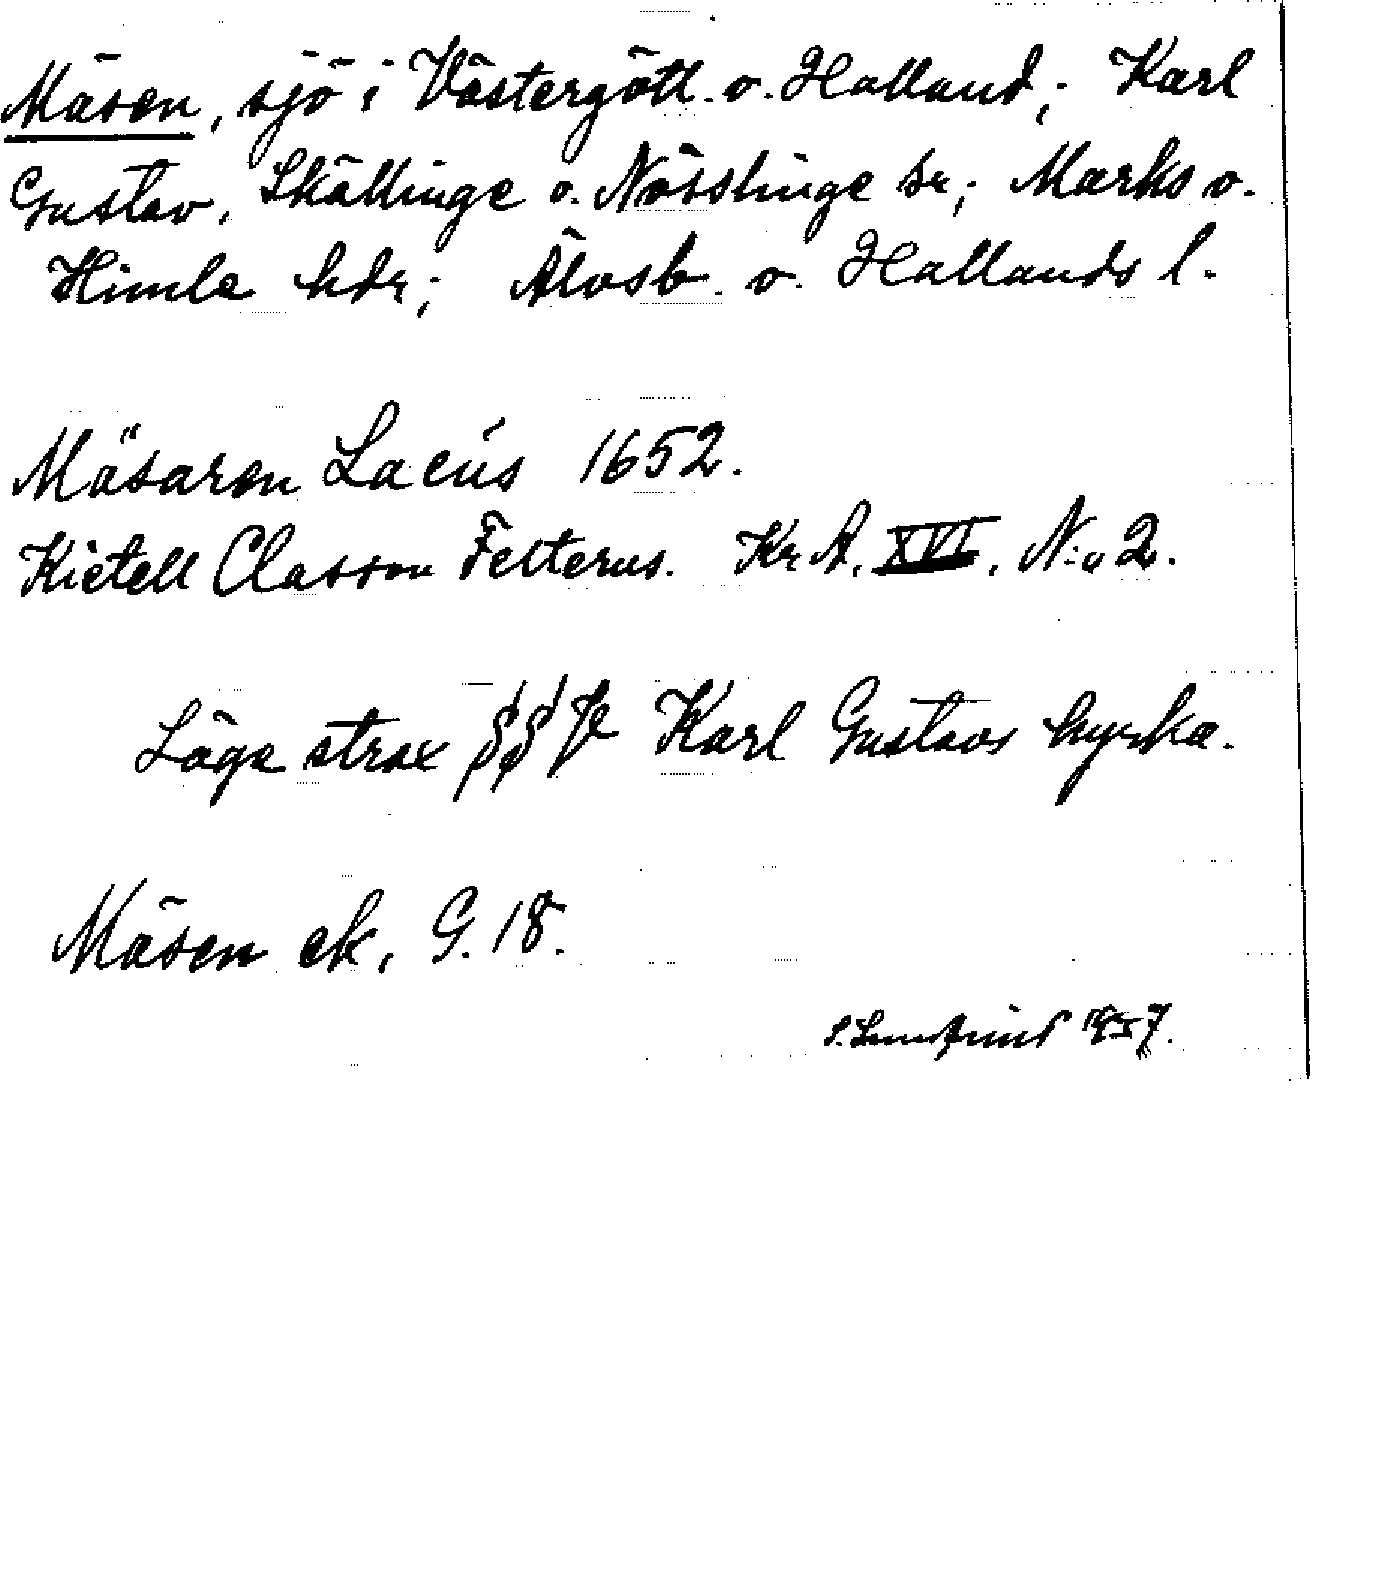 Mäsen, sjö i Västergötl. o. Halland; Karl
Gustav, Skällinge o. Nösslinge sr; Marks o.
Himle hdr; Älvsb. o. Hallands l.
Mäsaren Lacus 1652.
Kietell Classon Felterus. Kr A. XVI, N:o 2.
Läge strax fr Karl Gustavs kyrka.
Mäsen ek, G. 18.
S. Lundqvist 1957.